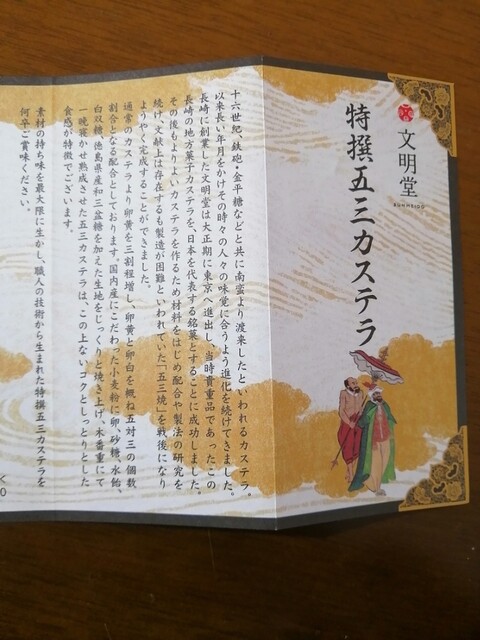 文明堂
BUNMEIDO
特撰五三カステラ
十六世紀、鉄砲・金平糖などと共に南蛮より渡来したといわれるカステラ。
以来長い年月をかけその時々の人々の味覚に合うよう進化を続けてきました。
長崎に創業した文明堂は大正期に東京へ進出し、当時貴重品であったこの
長崎の地方菓子カステラを、日本を代表する銘菓とすることに成功しました。
その後もよりよいカステラを作るため材料をはじめ配合や製法の研究を
続け、文献上は存在するも製造が困難といわれていた「五三焼」を戦後になり
ようやく完成することができました。
通常のカステラより卵黄を三割程増し、卵黄と卵白を概ね五対三の個数
割合となる配合としております。国内産にこだわった小麦粉に卵、砂糖、水飴、
白双糖、徳島県産和三盆糖を加えた生地をじっくりと焼き上げ、木番重にて
一晩寝かせ熟成させた五三カステラは、この上ないコクとしっとりとした
食感が特徴でございます。
素材の持ち味を最大限に生かし、職人の技術から生まれた特撰五三カステラを
何卒ご賞味ください。